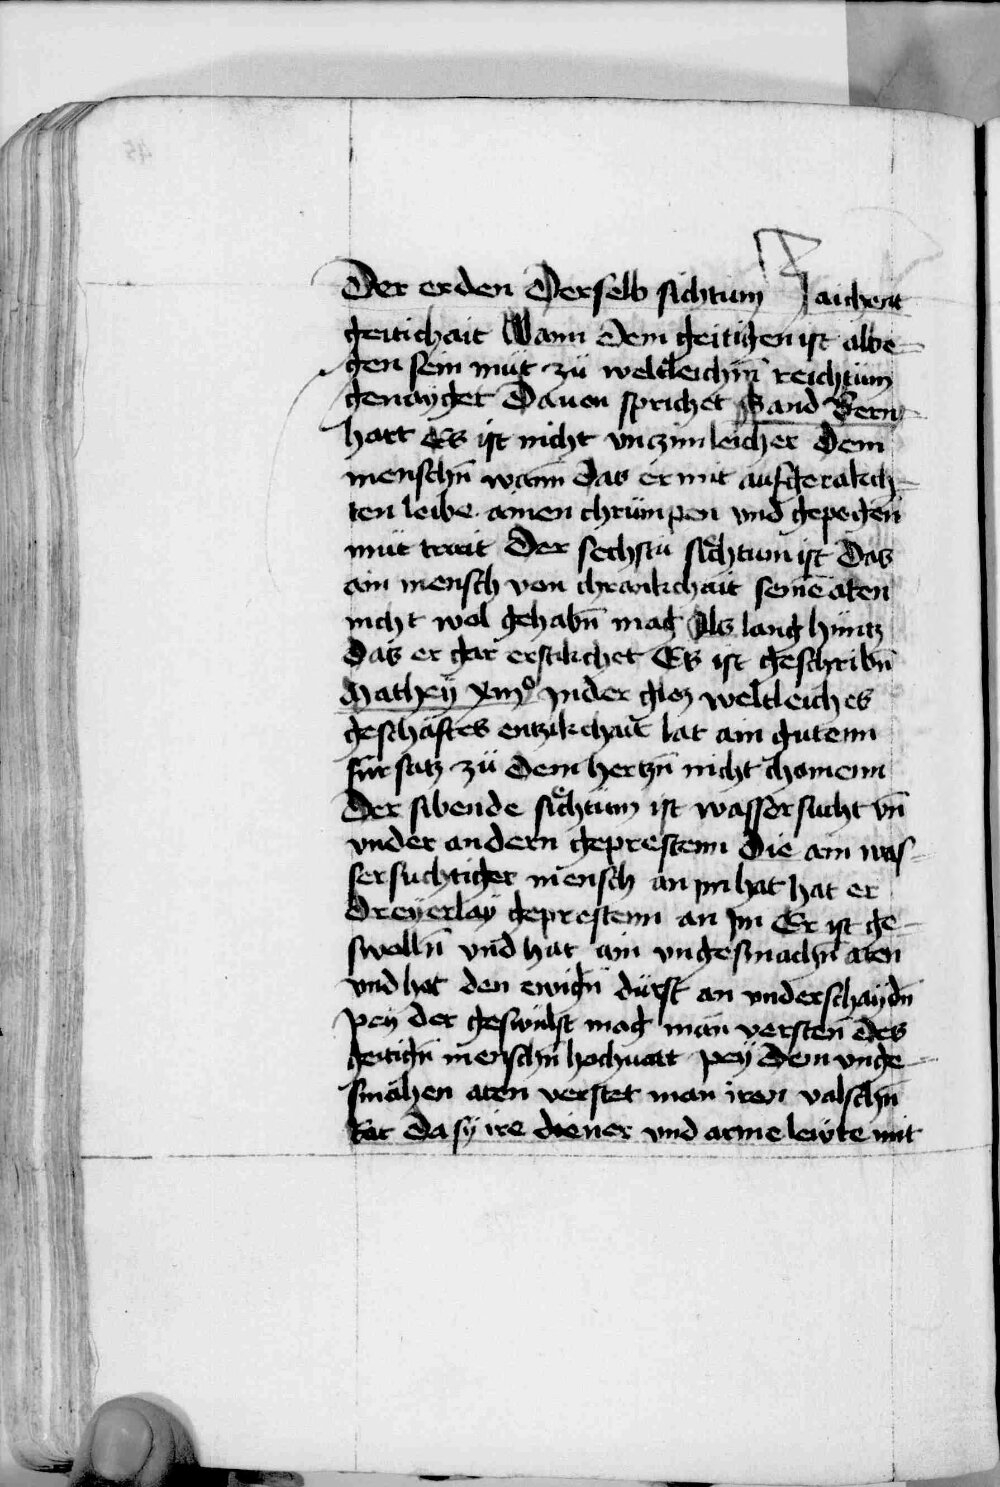 Der erden Derselb sichtum Zaichent
geitichait Wann dem geitigen ist albe-
gen sein müt zü weltleichm̄ reichtüm
genayget Dauon sprichet Sand Bern-
hart Es ist nicht vnczimleicher dem
menschn̄ wann das er mit aufgerakch-
ten leibe ainen chrümpen vnd gepogen
müt trait Der sechstu siͤchtum ist Das
ain mensch von chrankchait seine᷑ aten
nicht wol gehabn̄ mag Als lang hüntz
Das er gar erstikchet Es ist geschribn̄
Mathey xiijº In der gloz weltleiches
geschäftes entzikchait lat ain gutenn
für satz zü dem hertzn̄ nicht chomenn
Der sibende siͤchtüm ist wassersucht vn̄
vnder andern geprestenn Die ain was-
sersuchtiger mensch an im hat hat er
Dreyerlay geprestenn an Im Er ist ge-
swolln̄ vnd hat ain vngesmachn̄ aten
vnd hat den ewign̄ dürst an vnderschaydn̄
Pey der geswulst mag man versten des
geitign̄ menschn̄ hochuart pey dem vnge-
smahen aten verstet man iren valschn̄
Rat da sy ire diener vnd arme leẅte mit